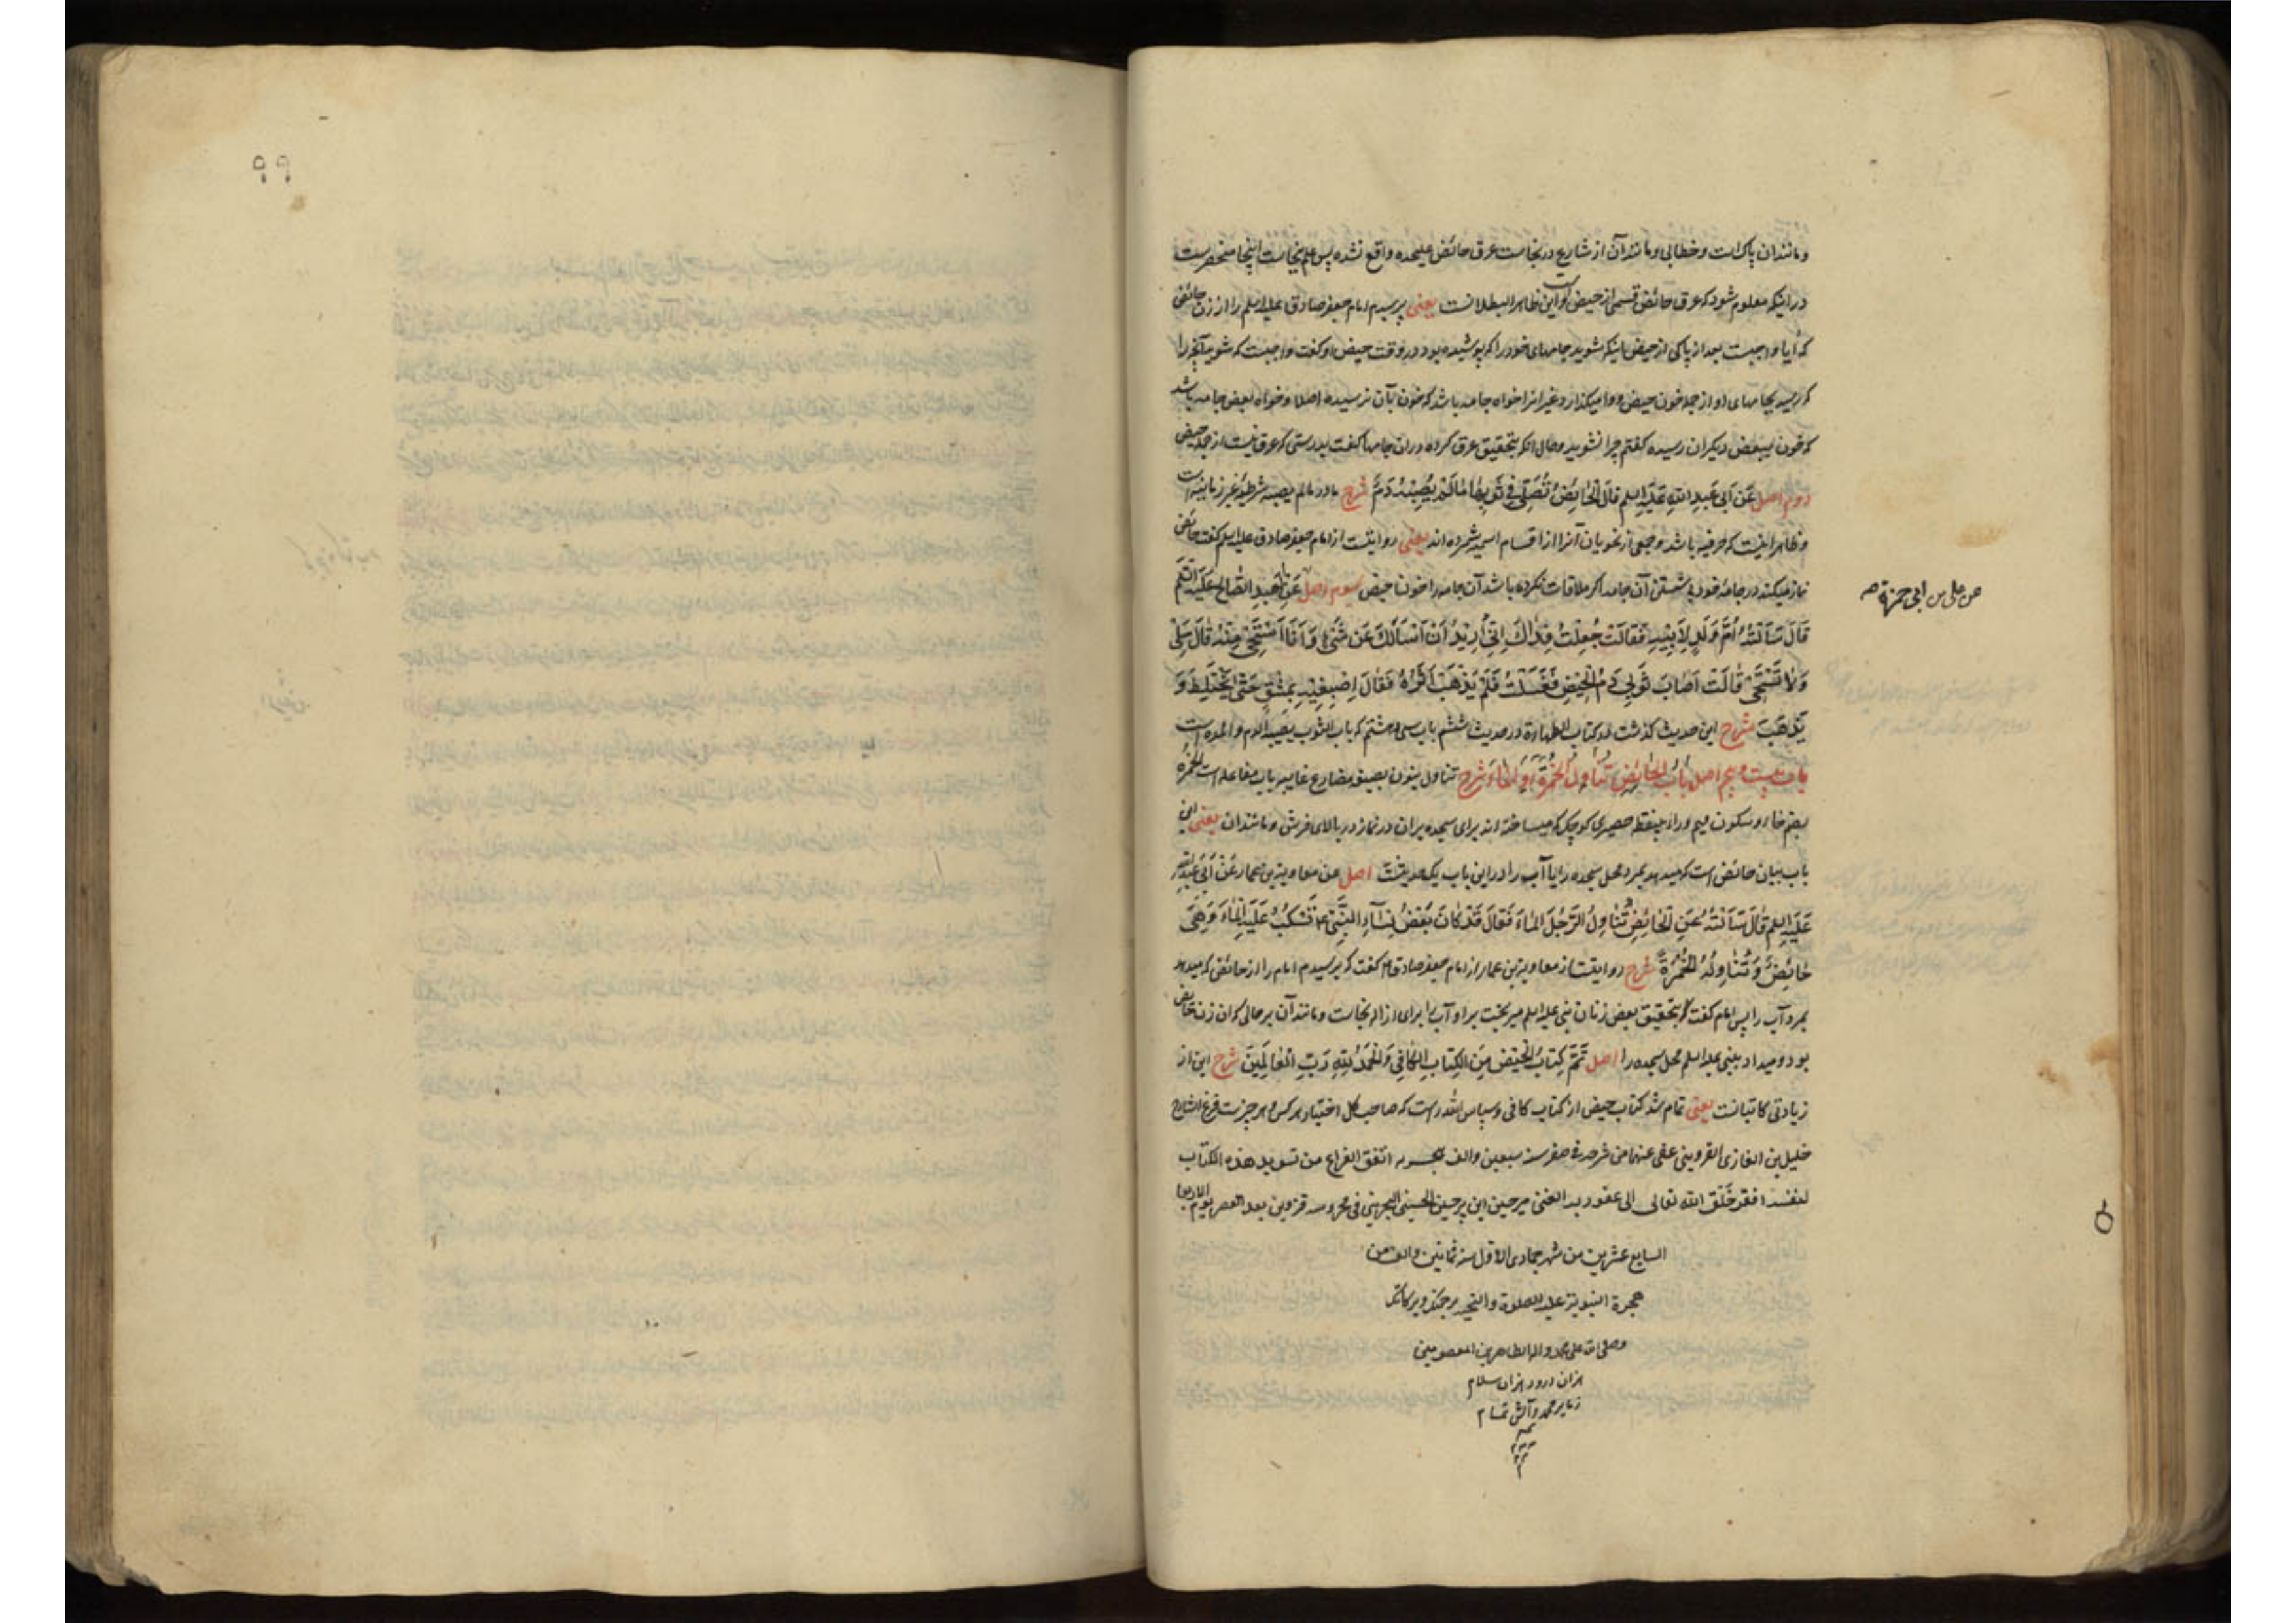 ومانندان پاکست وخطابی ومانندآن ازشارع درنجاست عرق حائض علیحده واقع نشده پس علم بنجاست اینجا منحصرست
دراینکه معلوم شود که عرق حائض قسمی ازحیض است واین ظاهر البطلانست یعنی پرسیدم امام جعفرصادق علیه السلم را اززن حائض
که آیا واجبست بعدازپاکی ازحیض اینکه بشوید جامهای خودرا که پوشیده بود دروقت حیض او کفت واجبست که بشوید آنچه را
که رسید بجامهای او ازجمله خون حیض ووامیکذارد غیرانرا خواه جامه باشد که خون بآن نرسیده اصلا وخواه بعض جامه باشد
که خون ببعض دیکران رسیده کفتم چرا نشوید وحال انکه بتحقیق عرق کرده دران جامها کفت بدرستی که عرق نیست ازجمله حیض
دوم اصل عَن اَبی عَبدِ اللهِ عَلَیهِ السلم قالَ اَلْحائِضُ تُصَلّی فی ثَوبِها مالَمْ یُصِبْهُ دَمٌ شرح ما در مالم یصبه شرطیه غیر زمانیه است
وظاهراینست که حرفیه باشد وجمعی ازنحویان آنرا ازاقسام اسمیه شمرده اند یعنی روایتست ازامام جعفرصادق علیه السلم کفت حائض
نمازمیکند درجامه خود بی شستن آن جامه اکر ملاقات نکرده باشد آن جامه را خون حیض سیوم اصل عَنِ الْعَبدِ الصّالِحِ عَلَیهِ السَّلَم
عن علی بن ابی حمزة صح
قالَ سَأَلَتْهُ اُمُّ وَلَدٍ لِاَبیهِ فَقالَتْ جُعِلْتُ فِداكَ اِنّی اُریدُ اَنْ اَسْأَلَكَ عَن شَیْءٍ وَاَنَا اَسْتَحْیی مِنْهُ قالَ سَلی
وَلا تَسْتَحْیی قالَتْ اَصابَ ثَوبی دَمُ الْحَیْضِ فَغَسَلْتُهُ فَلَمْ یَذْهَبْ اَثَرُهُ فَقالَ اِصْبِغیهِ بِمِشْقٍ حَتّی یَخْتَلِطَ وَ
یَذْهَبَ شرح این حدیث کذشت درکتاب الطهارة درحدیث ششم باب سی وهشتم که باب الثوب یصیبه الدم والمده است
باب بیست وپنجم اصل بابُ الحائِضِ تُناوِلُ الْخُمْرَةَ اَوِ الْماءَ شرح تناول بنون بصیغه مضارع غایبه باب مفاعله است الخمره
بضم خاء وسکون میم وراء بینقطه حصیری کوچک که میساخته اند برای سجده بران درنماز دربالای فرش ومانندان یعنی این
باب بیان حائض است که میدهد بمرد محل سجده را یا آب را دراین باب یک حدیثست اصل عن معاویة بن عمار عَنْ اَبی عَبدِ الله
عَلَیهِ السلم قالَ سَأَلْتُهُ عَنِ الْحائِضِ تُناوِلُ الرَّجُلَ الماءَ فَقالَ قَدْ كانَ بَعْضُ نِساءِ النَّبِیِّ ع تَسْكُبُ عَلَیهِ الْماءَ وَهِیَ
حائِضٌ وَتُناوِلُهُ الْخُمْرَةَ شرح روایتست از معاویة بن عمار از امام جعفر صادق ع کفت که پرسیدم امام را ازحائض که میدهد
بمرد آب را پس امام کفت که بتحقیق بعض زنان نبی علیه السلم میریخت براو آب را برای ازاله نجاست ومانند آن برحالی که ان زن حائض
بود ومیداد بنبی علیه السلم محل سجده را اصل تَمَّ كِتابُ الْحَیْضِ مِنَ الْكِتابِ الْكافی وَالْحَمْدُ للهِ رَبِّ الْعالَمینَ شرح این از
زیادتی کاتبانست یعنی تمام شد کتاب حیض از کتاب کافی وسپاس الله راست که صاحب کل اختیار هر کس وهر چیزست فرغ الشارح
خلیل بن الغازی القزوینی عفی عنهما من شرحه فی صفر سنه سبعین والف هجریه اتفق الفراغ من تسوید هذه الکتاب
لنفسه افقر خَلق الله تعالی الی عفو ربه الغنی میرحسین ابن پیرحسین الحسینی فی محروسه قزوین بعد العصر یوم الاربعا
السابع عشرین من شهر جمادی الاول سنه ثمانین والف من
هجرة النبویة علیه الصلوة والتحیه برحمتک وبرکاتک
وصلی الله علی محمد واله الطاهرین المعصومین
هزاران درود هزاران سلام
زما بر محمد وآلش تمام
۹۹